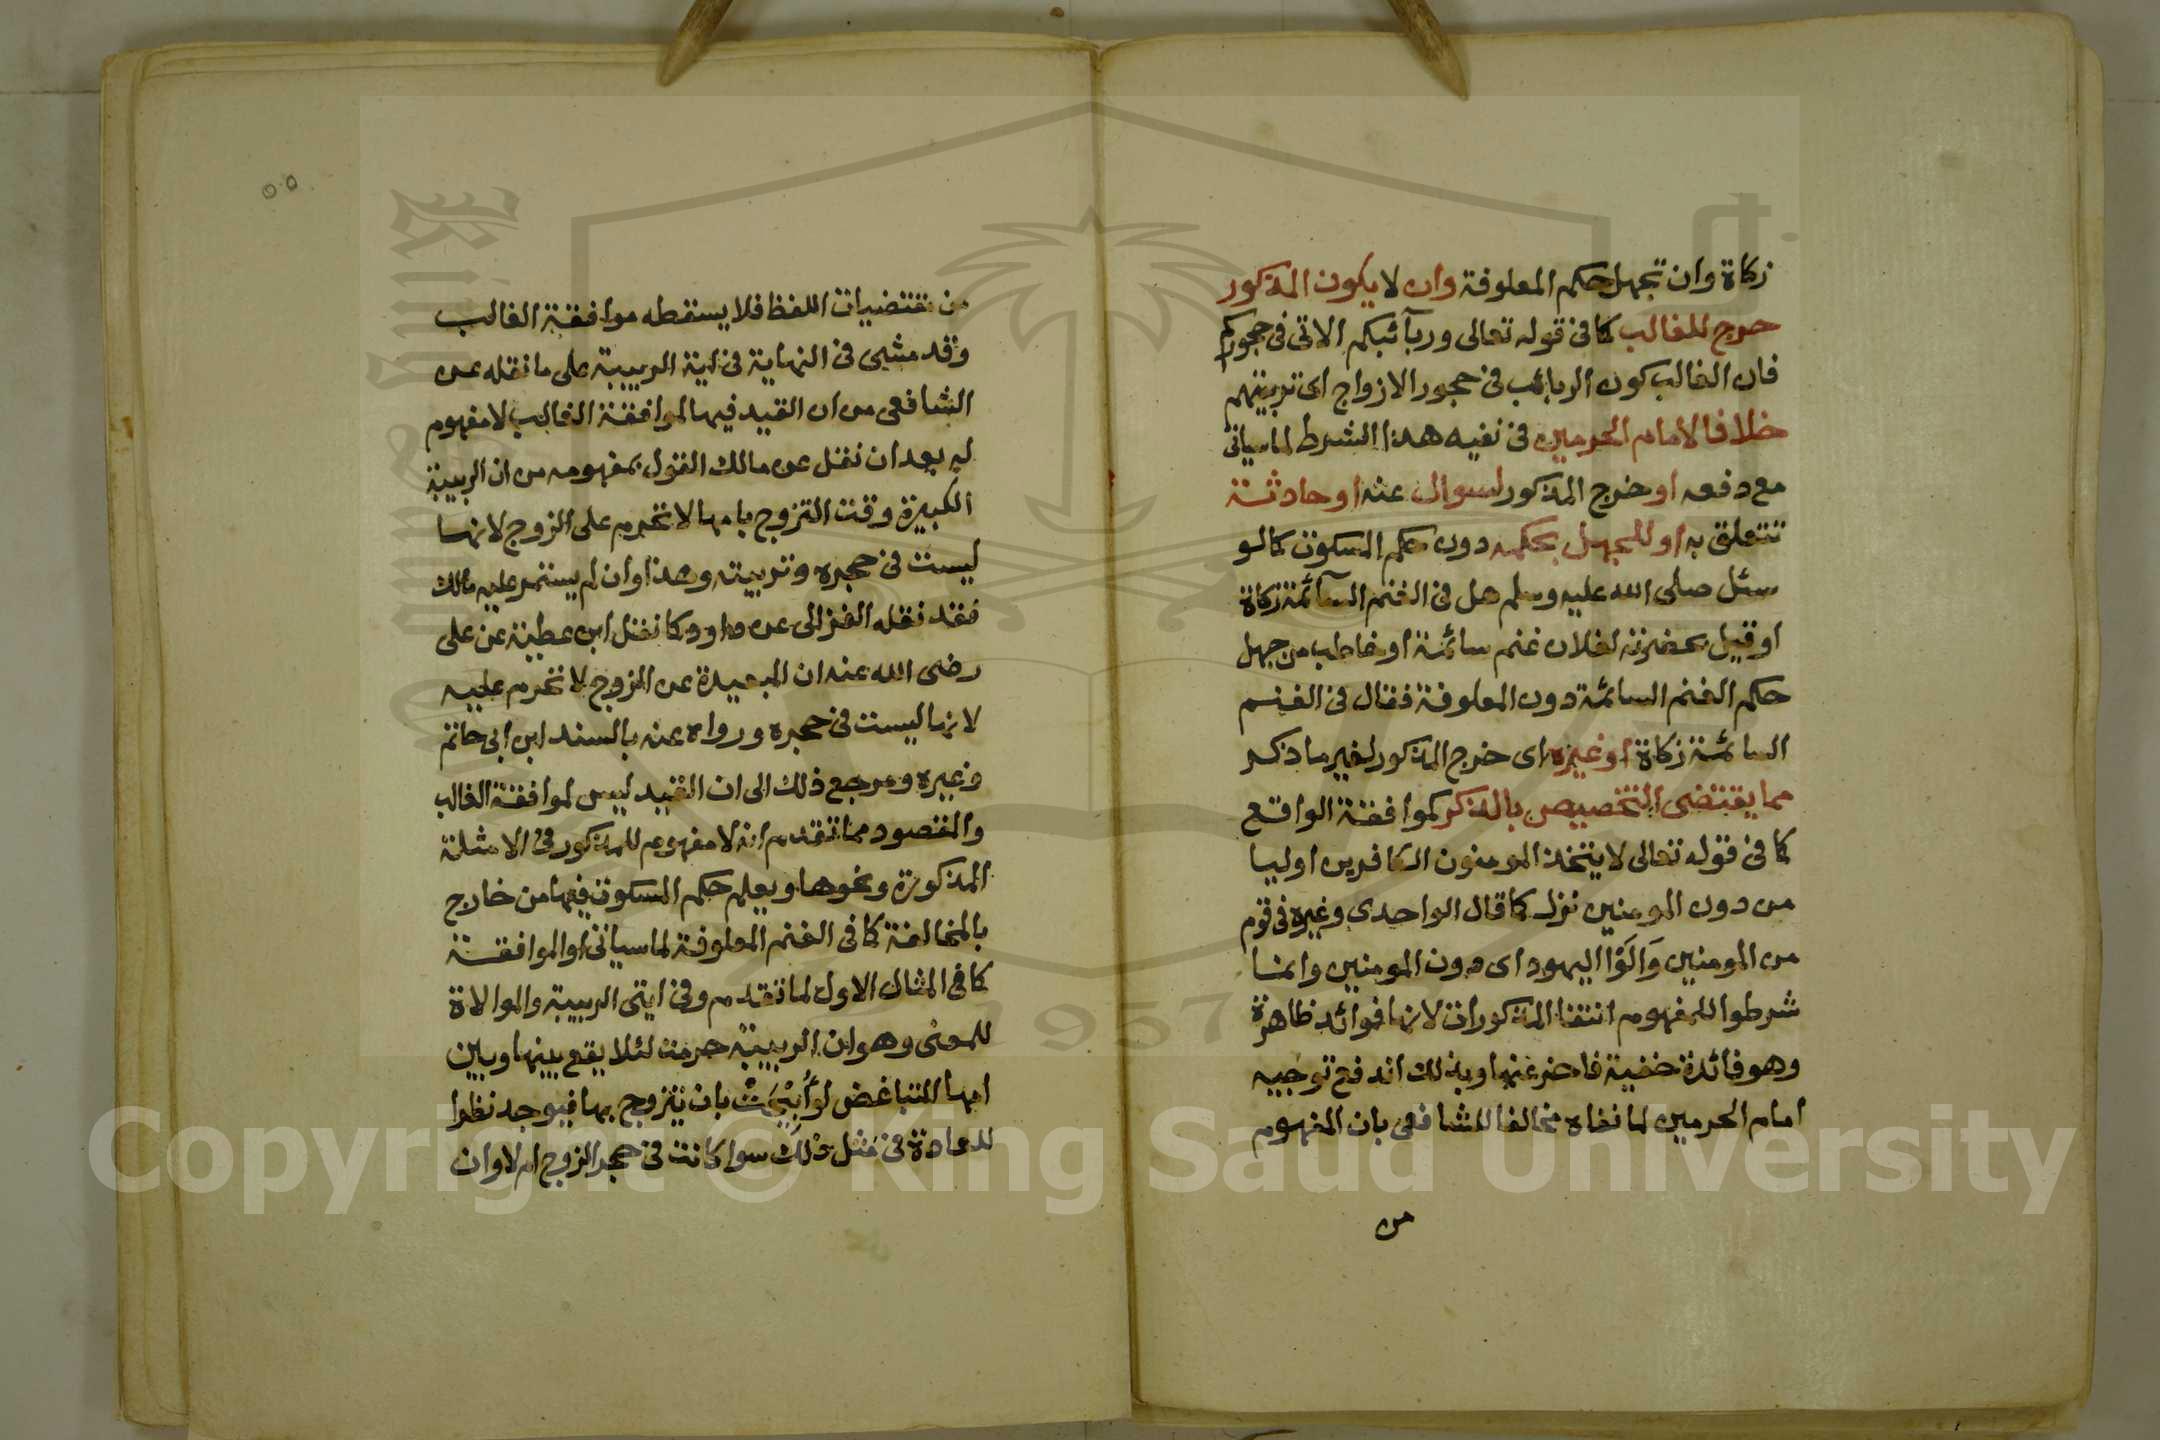 زكاة وان تجهل حكم المعلوفة وان لا يكون المذكور
خرج للغالب كما فى قوله تعالى وربآئبكم الاتى فى حجوركم
فان الغالب كون الربائب فى حجور الازواج اى تربيتهم
خلافا لامام الحرمين فى نفيه هذا الشرط لما سياتى
مع دفعه او خرج المذكور لسوال عنه او حادثة
تتعلق به او للجهل بحكمه دون حكم المسكوت كما لو
سئل صلى الله عليه وسلم هل فى الغنم السآئمة زكاة
او قيل بحضرته لفلان غنم سائمة او خاطب من جهل
حكم الغنم السائمة دون المعلوفة فقال فى الغنم
السائمة زكاة او غيره اى خرج المذكور لغير ما ذكر
مما يقتضى التخصيص بالذكر كموافقة الواقع
كما فى قوله تعالى لا يتخذ المومنون الكافرين اوليا
من دون المومنين نزل كما قال الواحدى وغيره فى قوم
من المومنين وَالَوْا اليهود اى دون المومنين وانما
شرطوا للمفهوم انتفا المذكورات لانها فوائد ظاهرة
وهو فائدة خفية فاخر عنها وبذلك اندفع توجيه
امام الحرمين لما نفاه مخالفا للشافعى بان المفهوم
من
٥٥
من مقتضيات اللفظ فلا يسقطه موافقة الغالب
وقد مشى فى النهاية فى اية الربيبة على ما نقله عن
الشافعى من ان القيد فيها لموافقة الغالب لا مفهوم
له بعد ان نقل عن مالك القول بمفهومه من ان الربيبة
الكبيرة وقت التزوج بامها لا تحرم على الزوج لانها
ليست فى حجره وتربيته وهذا وان لم يستمر عليه مالك
فقد نقله الغزالى عن داود كما نقل ابن عطية عن على
رضى الله عنه ان البعيدة عن الزوج لا تحرم عليه
لانها ليست فى حجره ورواه عنه بالسند ابن ابى حاتم
وغيره ومرجع ذلك الى ان القيد ليس لموافقة الغالب
والمقصود مما تقدم انه لا مفهوم للمذكور فى الامثلة
المذكورة ونحوها ويعلم حكم المسكوت فيها من خارج
بالمخالفة كما فى الغنم المعلوفة لما سياتى او الموافقة
كما فى المثال الاول لما تقدم وفى ايتى الربيبة والموالاة
للمعنى وهو ان الربيبة حرمت لئلا يقع بينها وبين
امها التباغض لو أُبِيْحَتْ بان يتزوج بها فيوجد نظرا
للعادة فى مثل ذلك سوا كانت فى حجر الزوج ام لا وان
Copyright © King Saud University
1957